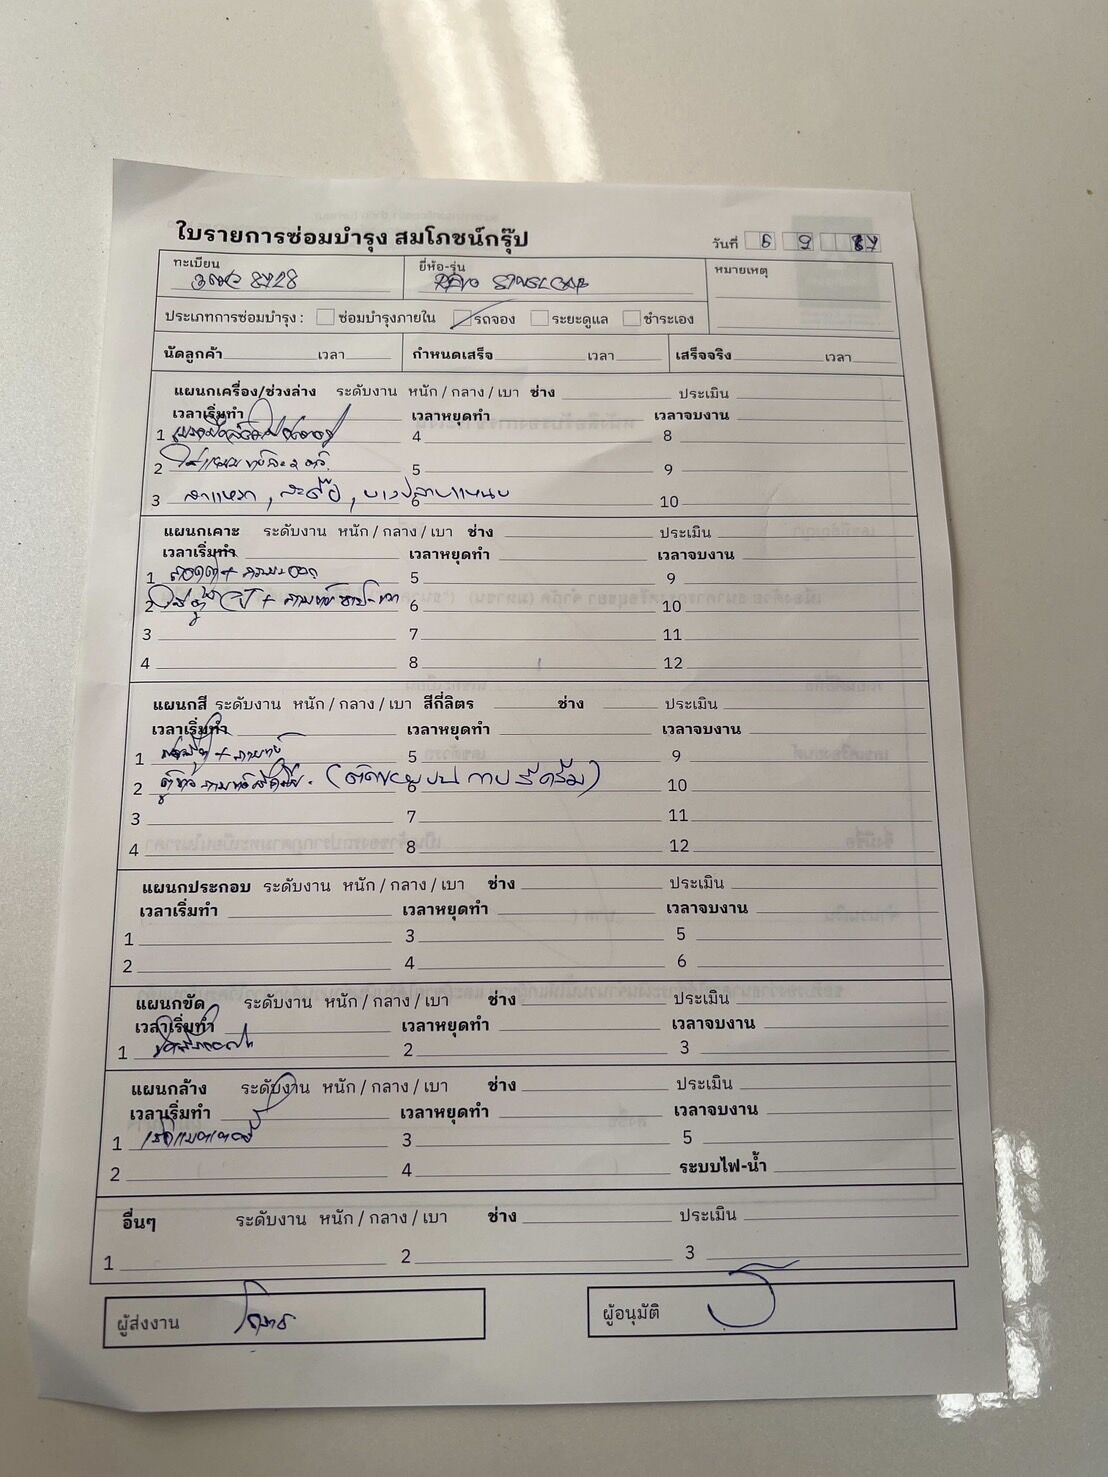 ใบรายการซ่อมบำรุง สมโภชน์กรุ๊ป
วันที่ 6 9 67
ทะเบียน 8728
ยี่ห้อ-รุ่น REVO SINGLE CAB
หมายเหตุ
ประเภทการซ่อมบำรุง : ซ่อมบำรุงภายใน รถจอง ระยะดูแล ชำระเอง
นัดลูกค้า เวลา กำหนดเสร็จ เวลา เสร็จจริง เวลา
แผนกเครื่อง/ช่วงล่าง ระดับงาน หนัก / กลาง / เบา ช่าง ประเมิน
เวลาเริ่มทำ เวลาหยุดทำ เวลาจบงาน
1 4 8
2 5 9
3 สาแหรก , สะดือ , ยางปลายแหนบ 10
แผนกเคาะ ระดับงาน หนัก / กลาง / เบา ช่าง ประเมิน
เวลาเริ่มทำ เวลาหยุดทำ เวลาจบงาน
1 5 9
2 6 10
3 7 11
4 8 12
แผนกสี ระดับงาน หนัก / กลาง / เบา สีกี่ลิตร ช่าง ประเมิน
เวลาเริ่มทำ เวลาหยุดทำ เวลาจบงาน
1 5 9
2 10
3 7 11
4 8 12
แผนกประกอบ ระดับงาน หนัก / กลาง / เบา ช่าง ประเมิน
เวลาเริ่มทำ เวลาหยุดทำ เวลาจบงาน
1 3 5
2 4 6
แผนกขัด ระดับงาน หนัก / กลาง / เบา ช่าง ประเมิน
เวลาเริ่มทำ เวลาหยุดทำ เวลาจบงาน
1 2 3
แผนกล้าง ระดับงาน หนัก / กลาง / เบา ช่าง ประเมิน
เวลาเริ่มทำ เวลาหยุดทำ เวลาจบงาน
1 3 5
2 4 ระบบไฟ-น้ำ
อื่นๆ ระดับงาน หนัก / กลาง / เบา ช่าง ประเมิน
1 2 3
ผู้ส่งงาน
ผู้อนุมัติ